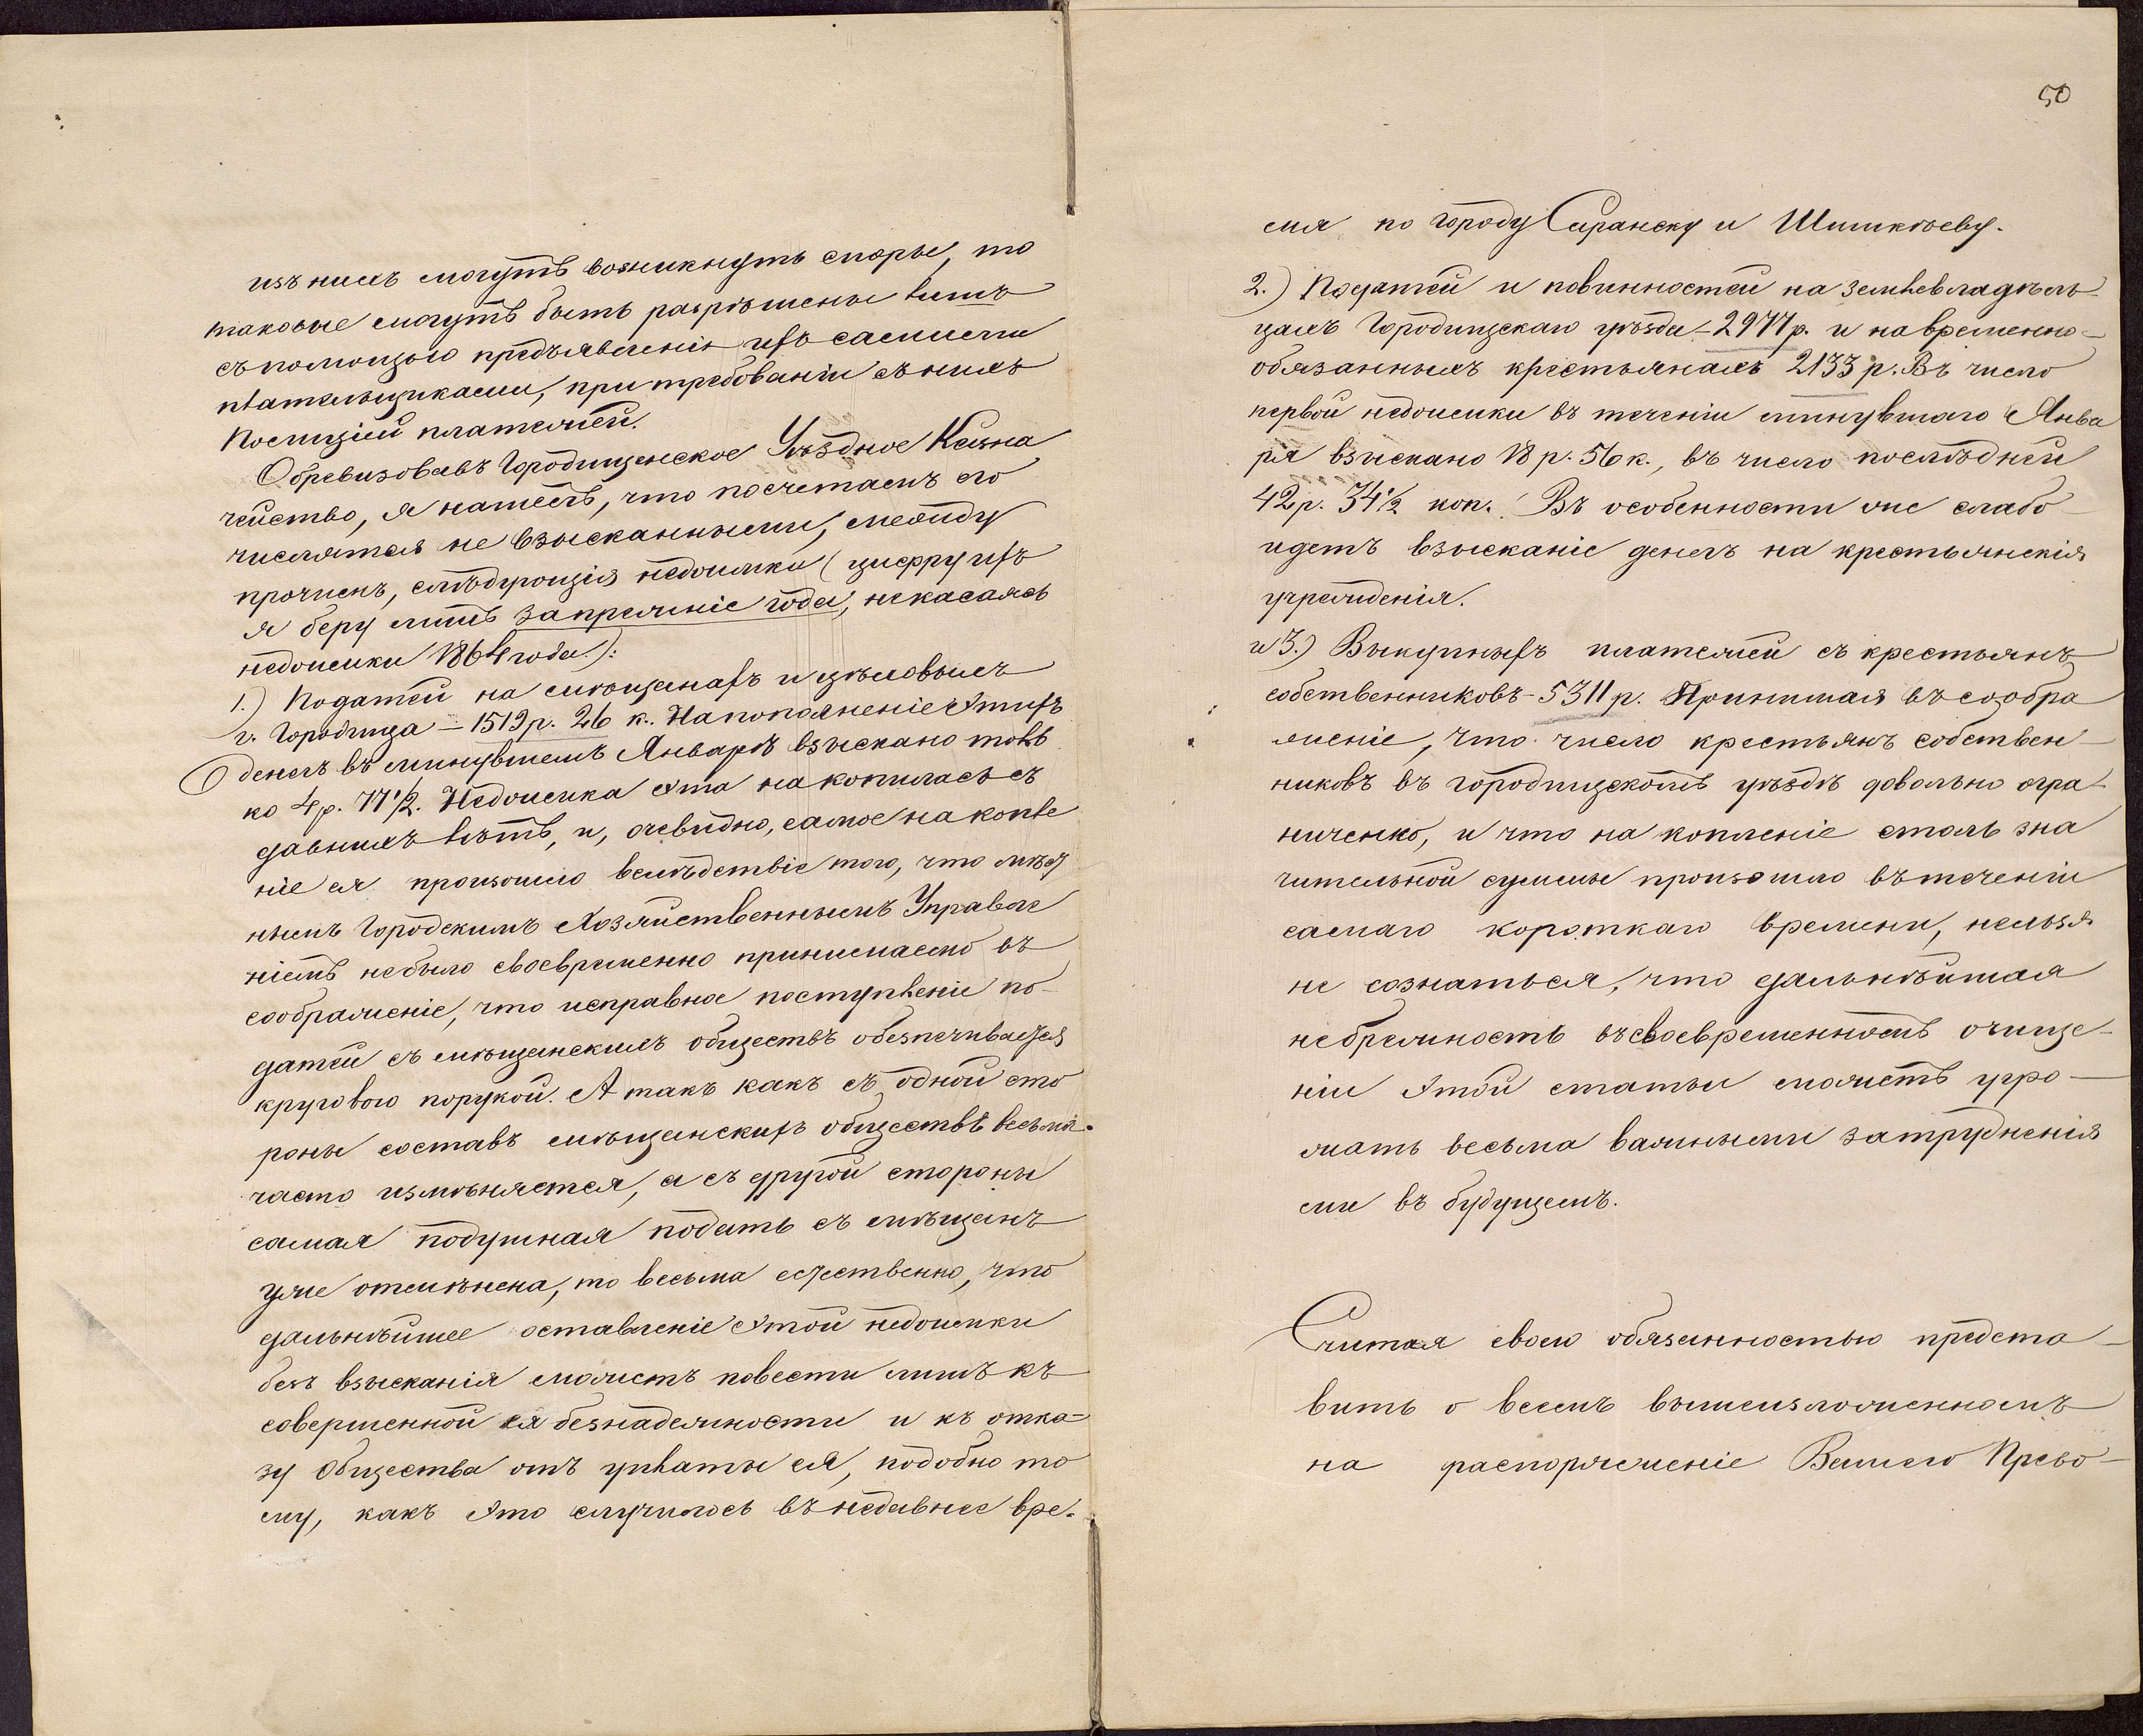 изъ нихъ могутъ возникнуть споры, то
таковые могутъ быть разрѣшены лишь
съ помощью предъявленія ихъ самими
плательщиками, при требованіи съ нихъ
Полиціей платежей.
Обревизовавъ Городищенское Уѣздное Казна
чейство, я нашелъ, что по счетамъ его
числятся не взысканными, между
прочимъ, слѣдующія недоимки (цифру ихъ
я беру лишь за прежніе года, не касаясь
недоимки 1864 года.):
1.) Податей на мѣщанахъ и цѣховыхъ
г. Городища – 1519 р. 26 к. На пополненіе этихъ
денегъ въ минувшемъ Январѣ взыскано толь
ко 4 р. 77 1/2. Недоимка эта накопилась съ
давнихъ лѣтъ, и, очевидно, самое накопле
ніе ея произошло вслѣдствіе того, что мѣст
нымъ Городскимъ Хозяйственнымъ Управле
ніемъ не было своевременно принимаемо въ
соображеніе, что исправное поступленіе по-
датей съ мѣщанскихъ обществъ обезпечивается
круговою порукой. А такъ какъ съ одной сто
роны составъ мѣщанскихъ обществъ весьма
часто измѣняется, а съ другой стороны
самая подушная подать съ мѣщанъ
уже отмѣнена, то весьма естественно, что
дальнѣйшее оставленіе этой недоимки
безъ взысканія можетъ повести лишь къ
совершенной ея безнадежности и къ отка=
зу Общества отъ уплаты ея, подобно то
му, какъ это случилось въ недавнее вре-
50
мя по городу Саранску и Шишкѣеву.
2.) Податей и повинностей на землевладѣль
цахъ Городищскаго уѣзда – 2977 р. и на временно-
обязанныхъ крестьянахъ 2133 р. Въ число
первой недоимки въ теченіи минувшаго Янва
ря взыскано 18 р. 56 к., въ число послѣдней
42 р. 34 1/2 коп. Въ особенности же слабо
идетъ взысканіе денегъ на крестьянскія
учрежденія.
и 3.) Выкупныхъ платежей съ крестьянъ
собственниковъ – 5311 р. Принимая въ сообра
женіе, что число крестьянъ собствен-
никовъ въ Городищскомъ уѣздѣ довольно огра-
ниченно, и что на копленіе столь зна
чительной суммы произошло въ теченіи
самаго короткаго времени, нельзя
не сознаться, что дальнѣйшая
небрежность въ своевременномъ очище-
ніи этой статьи можетъ угро-
жать весьма важными затрудненія
ми въ будущемъ.
Считая своею обязанностью предста-
вить о всемъ вышеизложенномъ
на распоряженіе Вашего Прево-